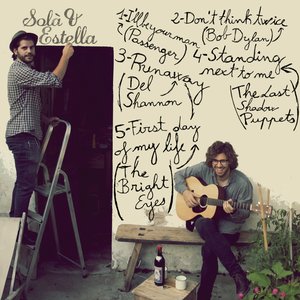 Solà &
Estella
1-I'll be your man
(Passenger)
2-Don't think twice
(Bob-Dylan)
3-Runaway
(Del
Shannon)
4-Standing
next to me
(The Last
Shadow
Puppets)
5-First day
of my life
(The
Bright
Eyes)